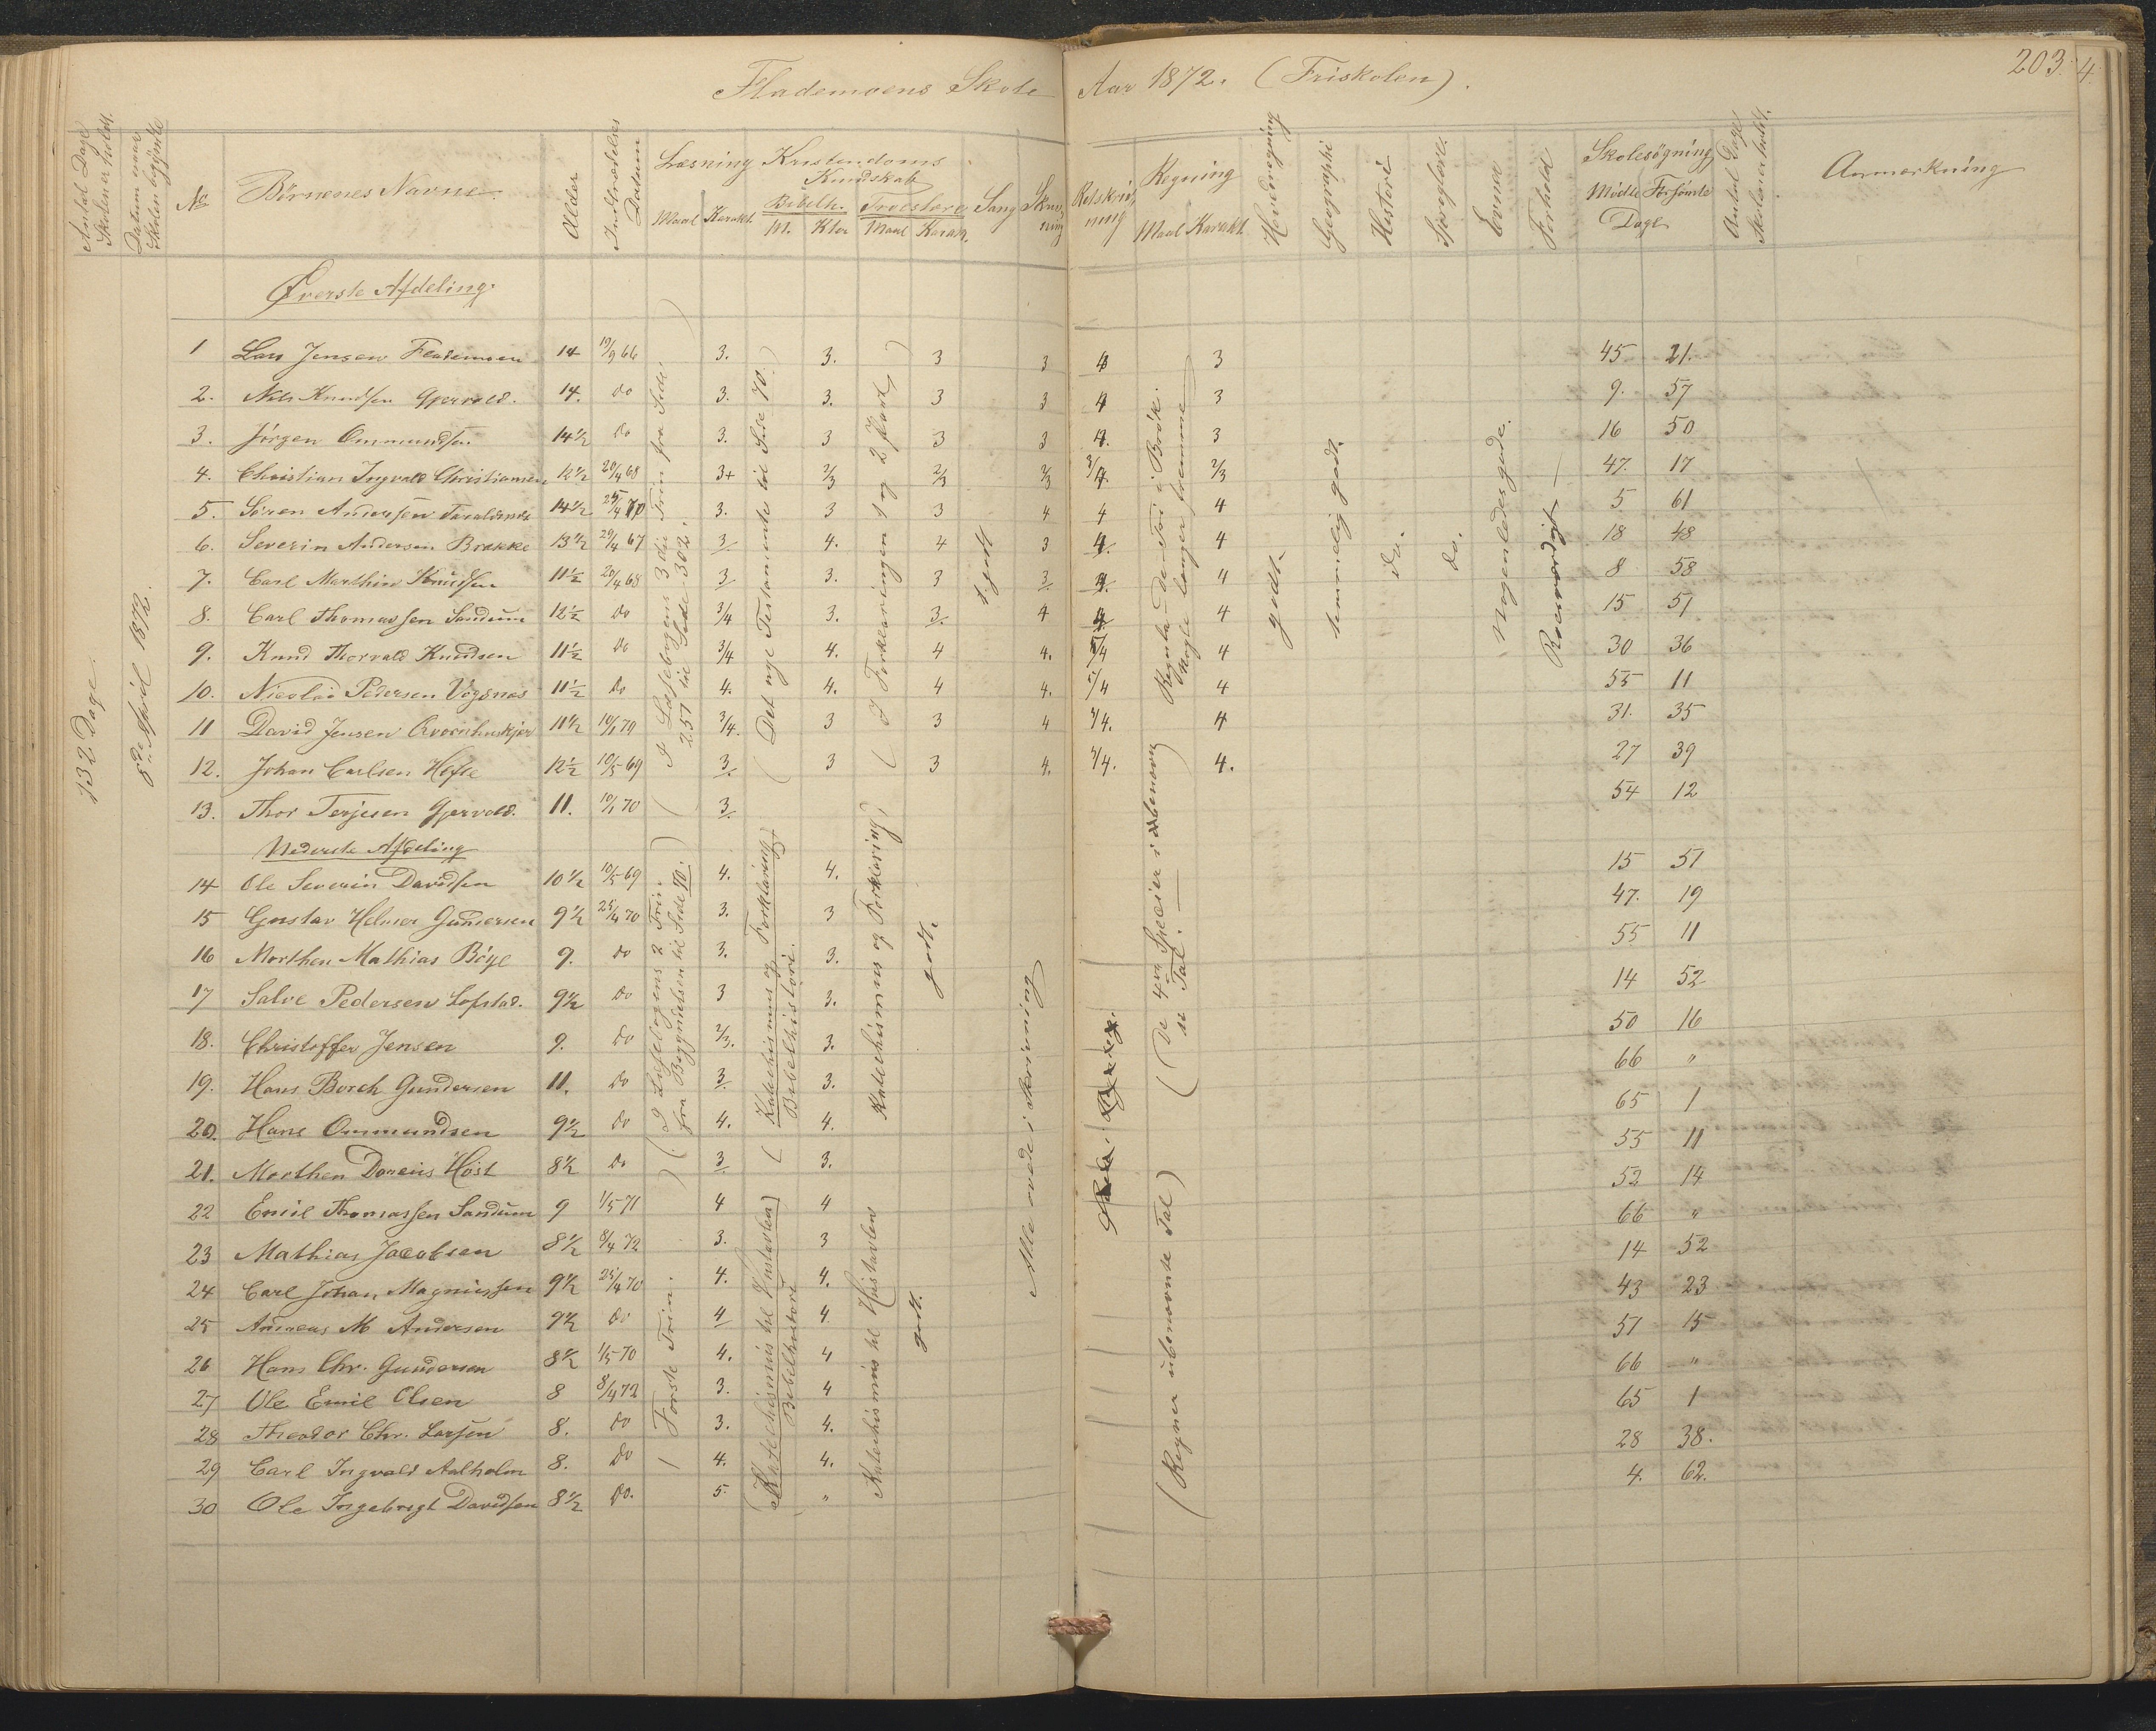 Flademoens Skole Aar 1872. (Friskolen).
203. 4.
Antal Dage Skolen er holdt.
Datum naar Skolen begyndte
No
Börnenes Navne.
Alder
Indtrædelses Datum
Læsning
Maal Karakt.
Kristendoms Kundskab
Bibelh. Troeslære
M. Kter Maal Karakt.
Sang
Skrivning
Retskrivning
Regning
Maal Karakt
Hovedregning
Geographi
Histori
Evner
Forhold
Skolesögning
Mödte Forsömte
Dage
Antal Dage Skolen er holdt.
Anmærkning
132 Dage.
8de April 1872.
Øverste Afdeling.
1 Lars Jensen Flademoen 14 19/9 66 3. 3. 3 3 4 3 45 21.
2. Nils Knudsen Gjervold. 14. do 3. 3. 3 3 4 3 9. 57
3. Jörgen Ommundsen 14½ Do 3. 3 3 3 4. 3 16 50
4. Christian Ingvald Christiansen 12½ 20/4 68 3+ 2/3 2/3 2/3 3/4 2/3 47. 17
5. Sören Andersen 14½ 25/4 70 3. 3 3 4 4 4 5 61
6. Severin Andersen Brække 13½ 29/4 67 3 4. 4 3 4. 4 18 48
7. Carl Marthin Knudsen 11½ 20/4 68 3 3. 3 3 4. 4 8 58
8. Carl Thomassen Sandum 12½ Do 3/4 3. 3. 4 4 4 15 51
9. Knud Thorvald Knudsen 11½ Do 3/4 4. 4 4. 5/4 4 30 36
10. Nicolai Pedersen Vogsnes 11½ Do 4. 4. 4 4. 5/4 4 55 11
11 David Jensen Qvernhuskjær 11½ 10/1 70 3/4. 3 3 4 3/4. 4 31. 35
12. Johan Carlsen Hefte 12½ 10/5 69 3. 3 3 4. 3/4. 4. 27 39
13. Thor Terjesen Gjervold. 11. 10/1 70 3 54 12
Nederste Afdeling
14 Ole Severin Davidsen 10½ 10/5 69 4. 4. 15 51
15 Gustav Helmer Gundersen 9½ 25/4 70 3. 3 47. 19
16 Morthen Mathias Böye 9. Do 3. 3. 55 11
17 Salve Pedersen Lofstad. 9½ Do 3 3. 14 52
18. Christoffer Jensen 9. Do 2/3. 3. 50 16
19. Hans Borch Gundersen 11. Do 3 3. 66 "
20. Hans Ommundsen 9½ Do 4. 4. 65 1
21. Morthen Doreius Höst 8½ Do 3 3. 55 11
22 Emil Thomassen Sandum 9 1/5 71 4 4 52 14
23 Mathias Jacobsen 8½ 8/4 72 3. 3 66 "
24 Carl Johan Magnussen 9½ 25/4 70 4. 4. 14 52
25 Andreas M Andersen 9½ Do 4 4 43 23
26 Hans Chr. Gundersen 8½ 1/5 70 4. 4 51 15
27 Ole Emil Olsen 8 8/4 72 3. 4 66 "
28 Theodor Chr. Larsen 8. Do 3. 4. 65 1
29 Carl Ingvald Aalholm 8. Do 4. 4. 28 38.
30 Ole Ingebregt Davidsen 8½ Do. 5. " 4. 62.
(af Læsebogens 3die Trin fra Side 251 til Side 302.)
(Det nye Testamente til Side 70.)
(I Forklaringen 1 og 2 Part)
godt
Regula-De-Tri i Brök. Nogle længer fremme
godt.
temmelig godt.
do.
do.
Nogenledes gode.
Roesværdigt
(I Læsebogens 2 Trin fra Begyndelsen til Side 70.)
(Katechismus og Forklaring) Bibelhistori.
Katechismus og Forklaring)
godt.
Alle övede i Skrivning
(De 4re Specier i ubenævnte Tal.
Förste Trin.
(Katechismus til Hustavlen) Bibelhistori
Katechismus til Hustavlen
godt.
(Regner ubenævnte Tal)